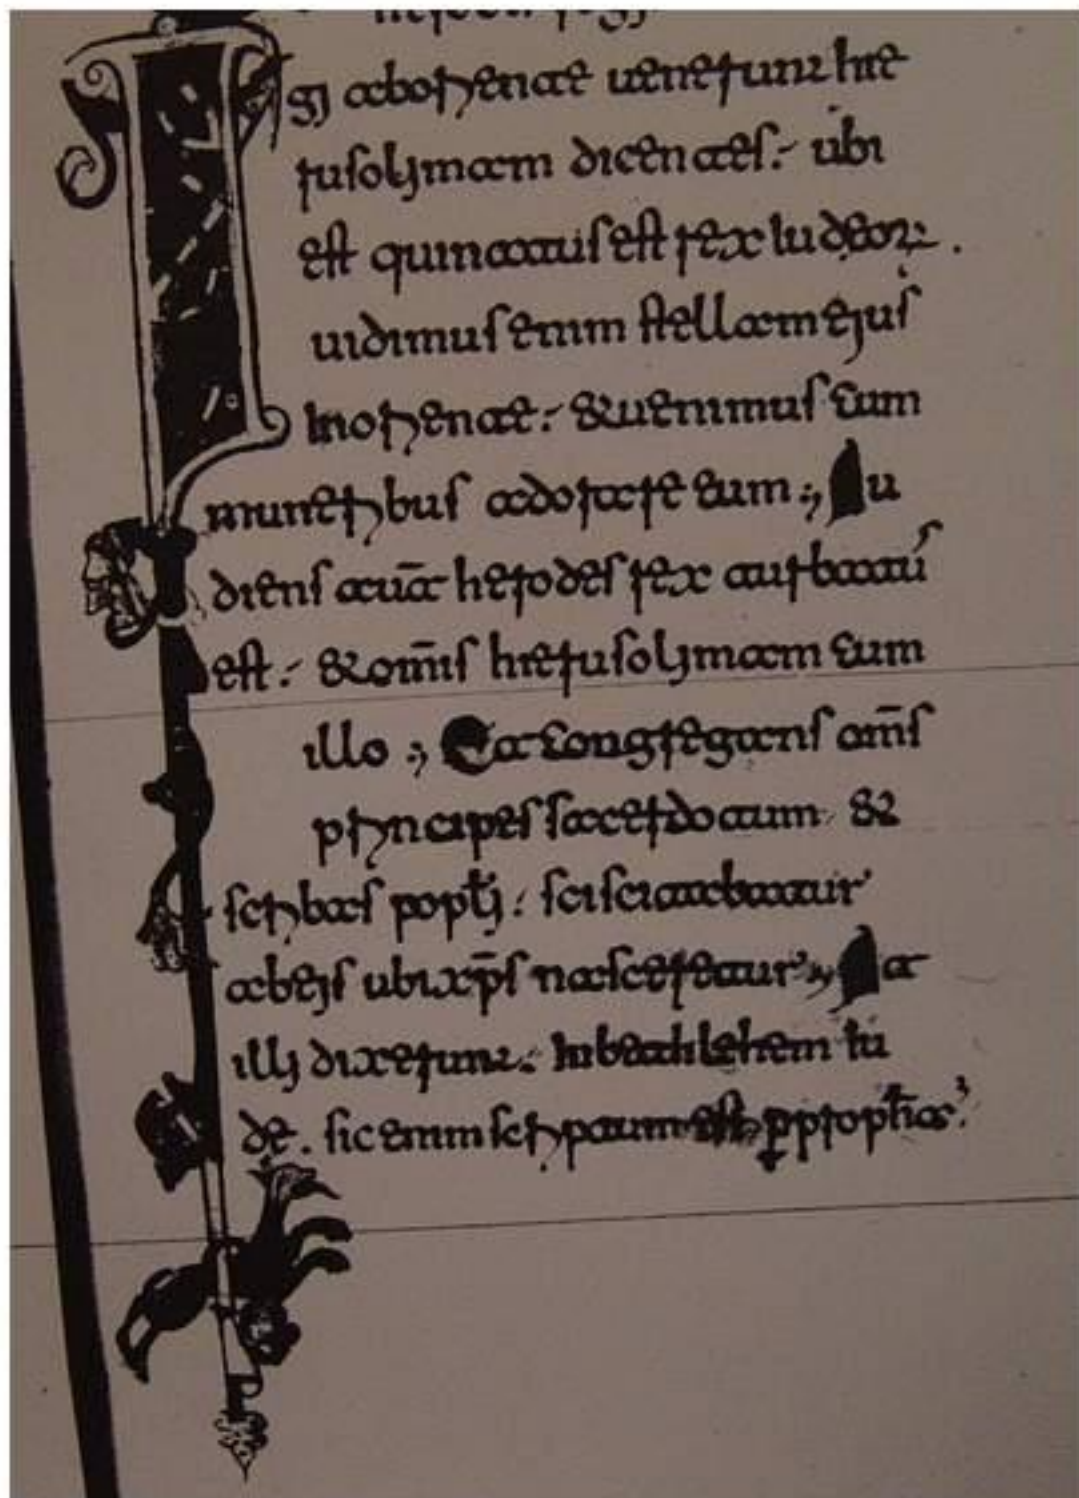 gi ab oriente venerunt hie
rusolimam dicentes: ubi
est qui natus est rex iudeor.
uidimus enim stellam eius
in oriente: & uenimus cum
muneribus adorare eum; Au
diens aut herodes rex turbatus
est: & omis hierusolimam cum
illo; Et congregans oms
principes sacerdotum &
scribas popli: sciscitabatur
ab eis ubi xps nasceretur; At
illi dixerunt: In bethlehem iu
de. sic enim scriptum est p prophta: